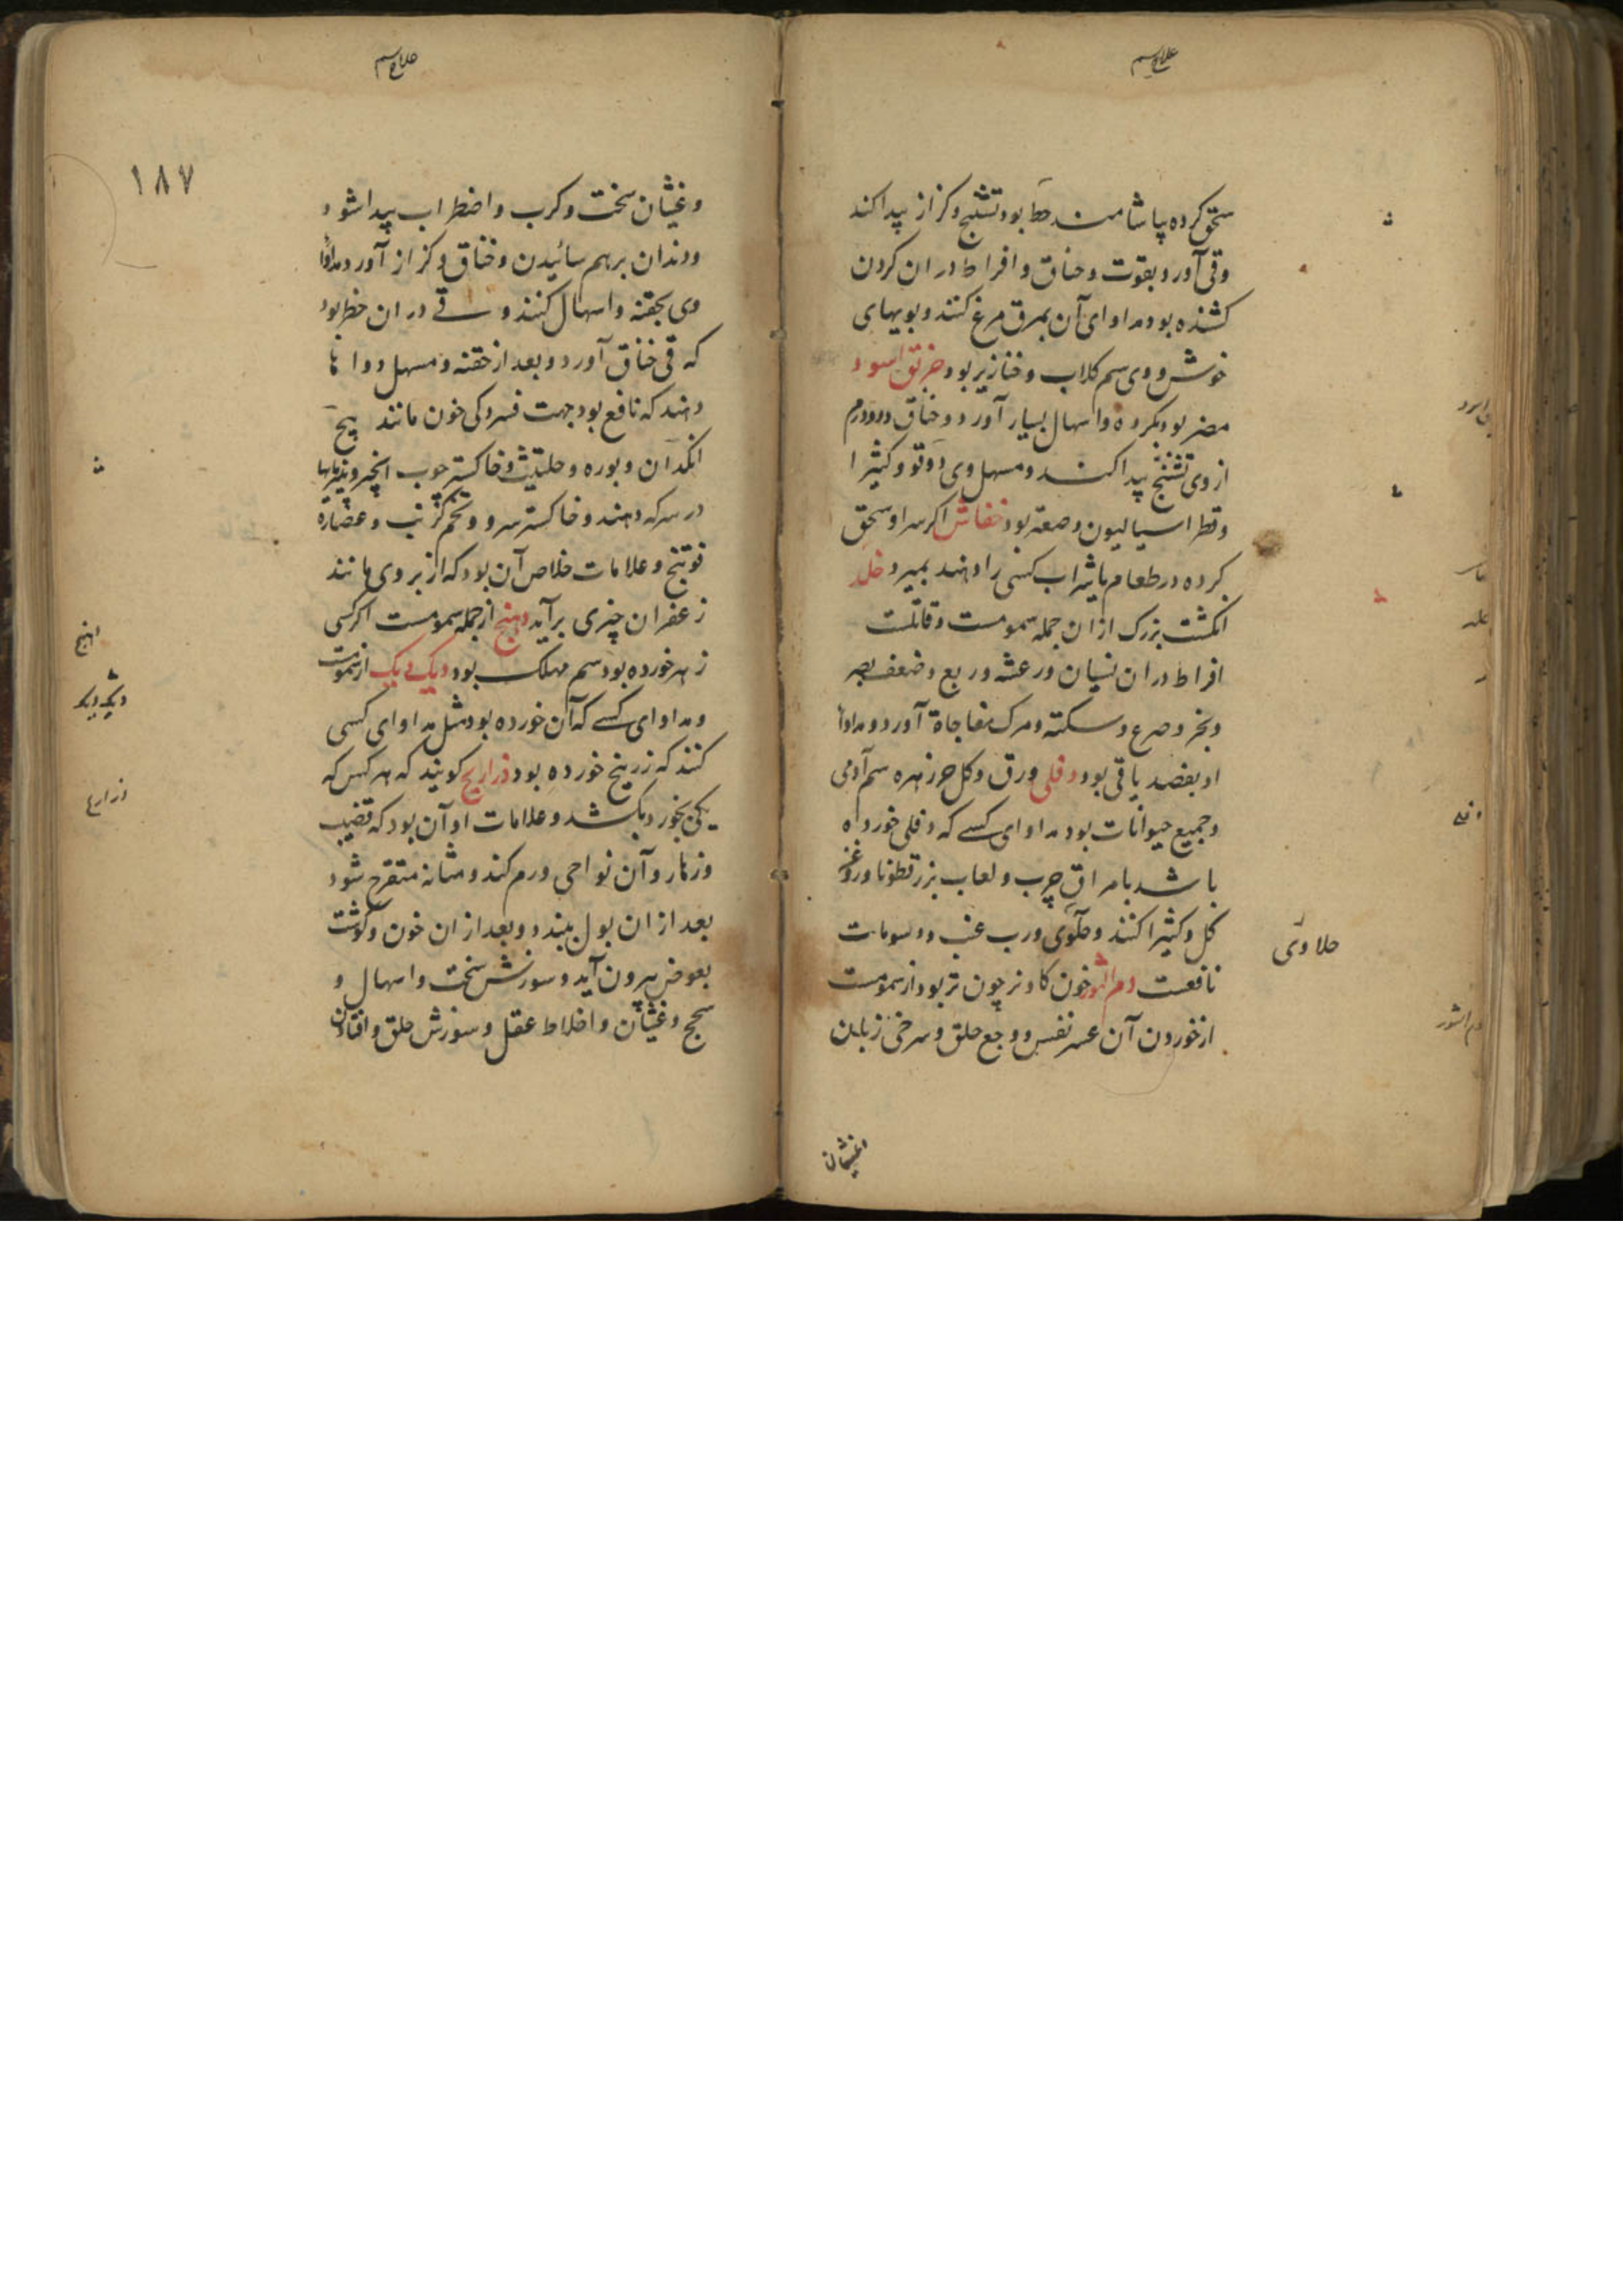 علاج سم
سحق کرده بیاشامند خطر بود تشنج و کزاز پیدا کند
وقی آورد بقوت و خناق و افراط در ان کردن
کشنده بود مداوای آن بمرق مرغ کنند و بویهای
خوش و وی سم کلاب و خنازیر بود خربق اسود
مضر بود بکرده و اسهال بسیار آورد و خناق و ورم
از وی تشنج پیدا کند و مسهل وی دوقو و کثیرا
وقطراسالیون و صعتر بود خفاش اگر سر او سحق
کرده در طعام یا شراب کسی را دهند بمیرد خلد
انگشت بزرگ از ان جمله سمومست و قاتلست
افراط در ان نسیان و رعشه و ربع و ضعف بصر
وبخر و صرع و سکته و مرک مفاجاة آورد و مداوا
او بفصد باقی بود دفلی ورق و کل خرزهره سم آدمی
وجمیع حیوانات بود مداوای کسی که دفلی خورده
باشد بامراق چرب و لعاب بزرقطونا و روغن
کل و کثیرا کنند و حلوی و رب عنب و دسومات
حلاوی
نافعست دم الثور خون کاو نر چون تر بود از سمومست
از خوردن آن عسر نفس و وجع حلق و سرخی زبان
دفلی
دم الثور
وغثیان
علاج سم
۱۸۷
وغثیان سخت و کرب و اضطراب پیدا شود
ودندان برهم سائیدن و خناق و کزاز آورد مداوا
وی بحقنه و اسهال کنند و قی در ان خطر بود
که قی خناق آورد و بعد از حقنه و مسهل دوا ها
دهند که نافع بود جهت فسردکی خون مانند بیخ
انکدان و بوره و حلتیث و خاکستر چوب انجیر و پنیرمایها
در سرکه دهند و خاکستر سرو و تخم کرنب و عصاره
فوتنج و علامات خلاص آن بود که از بر وی مانند
زعفران چیزی برآید دهنج از جمله سمومست اگر کسی
زهر خورده بود سم مهلک بود دیک بدیک از سمومست
ومداوای کسی که آن خورده بود مثل مداوای کسی
کنند که زرنیخ خورده بود ذراریح گویند که هر کس که
یکی بخورد بکشد و علامات او آن بود که قضیب
وزهار و آن نواحی ورم کند و مثانه متقرح شود
بعد از ان بول ببندد و بعد از ان خون و گوشت
بعوض بیرون آید و سوزش سخت و اسهال و
سحج و غثیان و اختلاط عقل و سوزش حلق و افتادن
دهنج
دیک بدیک
ذراریح